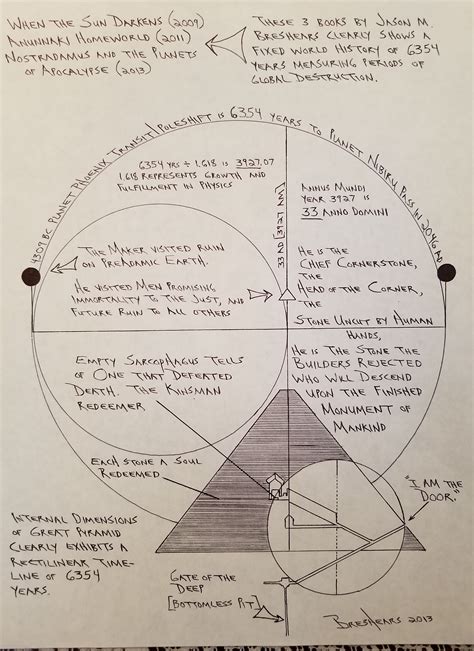 When the Sun Darkens (2009)
Anunnaki Homeworld (2011)
Nostradamus and the Planets
of Apocalypse (2013)
These 3 books by Jason M.
Breshears clearly shows a
fixed world history of 6354
years measuring periods of
global destruction.
4309 BC Planet Phoenix Transit/Poleshift is 6354 years to Planet Nibiru Pass in 2046 AD
6354 yrs ÷ 1.618 is 3927.07
1.618 represents growth and
fulfillment in physics
33 AD [3927 AM]
Annus Mundi
Year 3927 is
33 Anno Domini
The Maker visited ruin
on PreAdamic Earth.
He visited men promising
immortality to the just, and
future ruin to all others
He is the
Chief Cornerstone,
the
Head of the Corner,
the
Stone Uncut by Human
Hands,
He is the Stone the
Builders Rejected
Who will descend
upon the finished
Monument of
Mankind
Empty Sarcophagus tells
of One that defeated
Death. The Kinsman
Redeemer
Each stone a soul
redeemed
"I am the
Door."
Internal dimensions
of Great Pyramid
clearly exhibits a
rectilinear time-
line of 6354
years.
Gate of the
Deep
[Bottomless Pit]
Breshears 2013